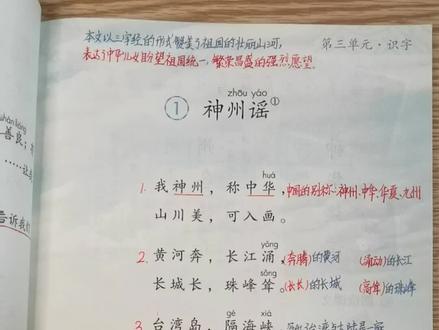 本文以三字经的形式赞美了祖国的壮丽山河,
表达了中华儿女盼望祖国统一,繁荣昌盛的强烈愿望。
第三单元·识字
shàn liáng
善良;
……让
告诉我们
zhōu yáo
① 神州谣①
huá
1. 我神州,称中华,中国的别称:神州、中华、华夏、九州
山川美,可入画。
yǒng
2. 黄河奔,长江涌,(奔腾)的黄河 (涌动)的长江
sǒng
长城长,珠峰耸。(长长)的长城 (高耸)的珠峰
gé xiá
3. 台湾岛,隔海峡,